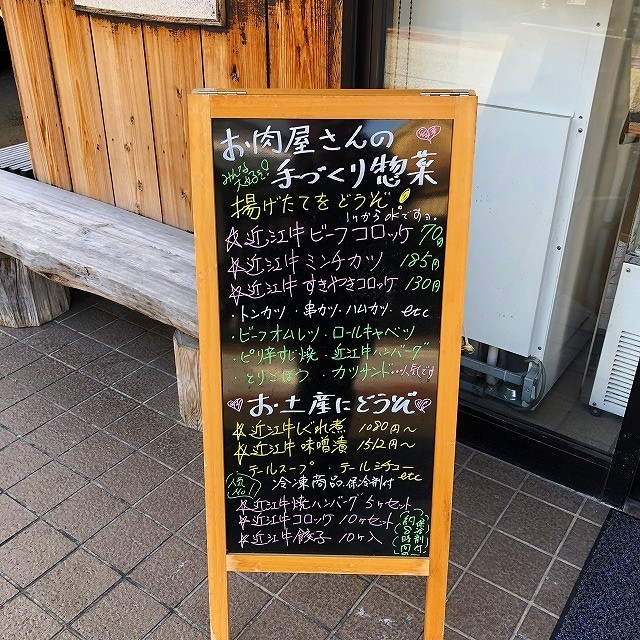 お肉屋さんの
みんな大好き!
手づくり惣菜
揚げたてをどうぞ
1ケからokですョ。
☆近江牛ビーフコロッケ 70円
☆近江牛ミンチカツ 185円
☆近江牛すきやきコロッケ 130円
・トンカツ・串カツ・ハムカツ・etc
・ビーフオムレツ・ロールキャベツ
・ピリ辛すじ焼・近江牛ハンバーグ
とりごぼう・カツサンド…人気です
お土産にどうぞ
☆近江牛しぐれ煮 1080円〜
☆近江牛味噌漬 1512円〜
・テールスープ・テールシチューetc
人気No1
冷凍商品保冷剤付
☆近江牛焼ハンバーグ 5ケセット
☆近江牛コロッケ 10ケセット
☆近江牛餃子 10ケ入
保冷剤付
約8時間OK